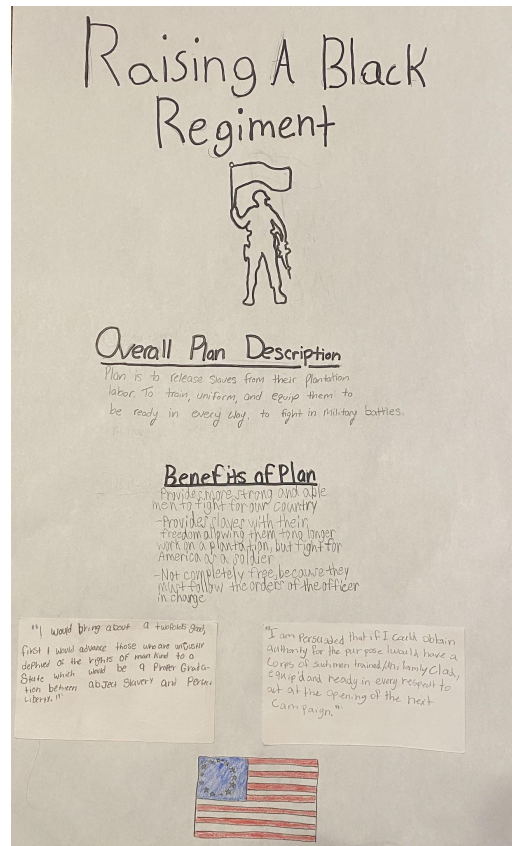 Raising A Black
Regiment
Overall Plan Description
Plan is to release slaves from their Plantation
labor. To train, uniform, and equip them to
be ready in every way, to fight in Military battles.
Benefits of Plan
Provides more strong and able
men to fight for our country
-Provides slaves with their
freedom allowing them to no longer
work on a plantation, but fight for
America as a soldier
-Not completely free, because they
must follow the orders of the officer
in charge
"I would bring about a twofold good,
first I would advance those who are unjustly
deprived of the rights of man kind to a
State which would be a Proper Grada-
tion between abject Slavery and Perfect
Liberty."
"I am Persuaded that if I could obtain
authority for the purpose I would have a
Corps of such men trained, uniformly Clad,
equip'd and ready in every respect to
act at the opening of the next
Campaign."